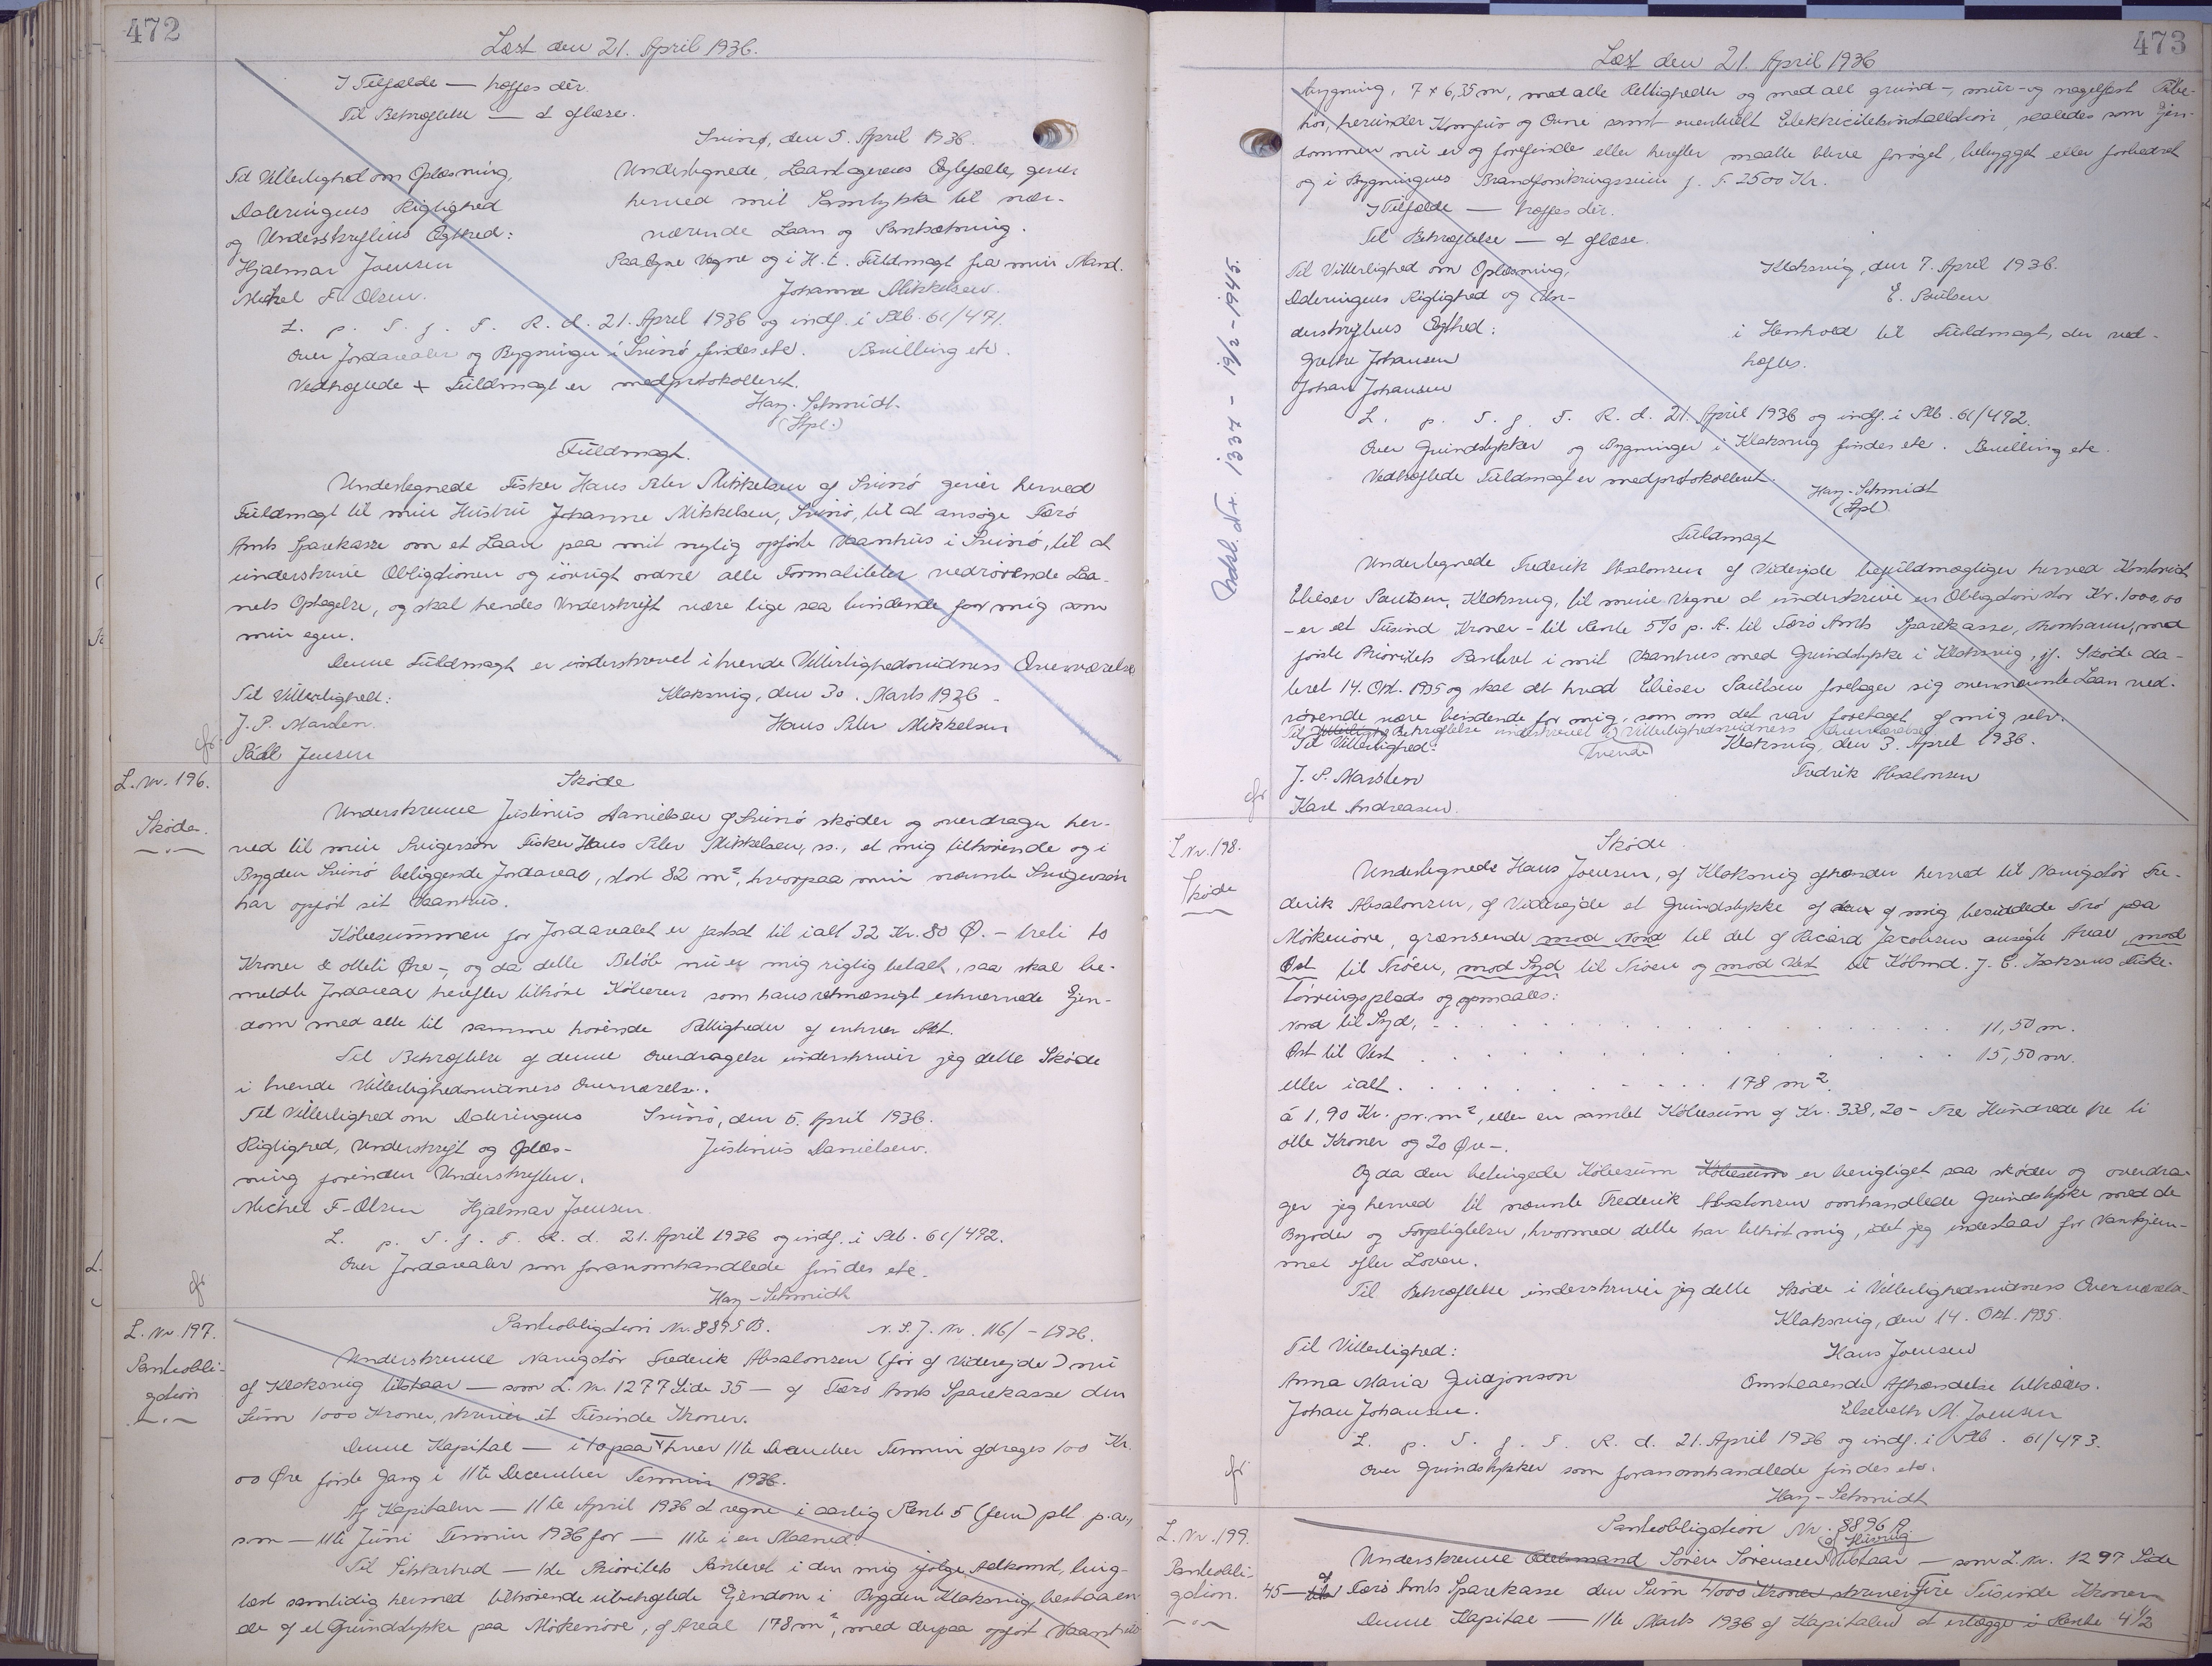 472
Læst den 21. April 1936.
I Tilfælde — hæftes dèr.
Til Bekræftelse — at læse.
Svinø, den 5. April 1936.
Til Vitterlighed om Oplæsning,
Dateringens Rigtighed
og Underskriftens Ægthed:
Hjalmar Joensen
Michel F. Olsen.
Undertegnede, Laantagerens Ægtefælle, giver
herved mit Samtykke til nær-
værende Laan og Pantsætning.
Paa Egne Vegne og i H. t. Fuldmagt fra min Mand.
Johanne Mikkelsen.
L. p. T. f. F. R. d. 21. April 1936 og indf. i Ptb. 61/471.
Over Jordarealer og Bygninger i Svinø findes etc. Bevilling etc.
Vedhæftede Fuldmagt er medprotokolleret.
Hary. Schmidt.
(Stpl.)
Fuldmagt.
Undertegnede Fisker Hans Peter Mikkelsen af Svinø giver herved
Fuldmagt til min Hustru Johanne Mikkelsen, Svinø, til at ansøge Færø
Amts Sparekasse om et Laan paa mit nylig opførte Vaanhus i Svinø, til at
underskrive Obligationen og iövrigt ordne alle Formaliteter vedrørende Laa-
nets Optagelse, og skal hendes Underskrift være lige saa bindende for mig som
min egen.
Denne Fuldmagt er underskrevet i tvende Vitterlighedsvidners Overværelse
Til Vitterlighed:
Klaksvig, den 30. Marts 1936.
J. P. Marsten.
Hans Peter Mikkelsen
Páll Jensen
L. Nr. 196.
Skøde.
Skøde
Underskrevne Justinus Danielsen af Svinø skøder og overdrager her-
ved til min Svigersøn Fisker Hans Peter Mikkelsen, ss., et mig tilhørende og i
Bygden Svinø beliggende Jordareal, stort 82 m², hvorpaa min nævnte Svigersøn
har opført sit Vaanhus.
Købesummen for Jordarealet er fastsat til ialt 32 Kr. 80 Ø. – treti to
Kroner & otteti Øre –, og da dette Beløb nu er mig rigtig betalt, saa skal be-
meldte Jordareal herefter tilhøre Køberen som hans retmæssigt erhvervede Ejen-
dom med alle til samme hørende Rettigheder af enhver Art.
Til Bekræftelse af denne Overdragelse underskriver jeg dette Skøde
i tvende Vitterlighedsvidners Overværelse.
Til Vitterlighed om Dateringens
Svinø, den 5. April 1936.
Rigtighed, Underskrift og Oplæs-
Justinus Danielsen.
ning forinden Underskriften.
Michel F. Olsen Hjalmar Joensen.
L. p. T. f. F. R. d. 21. April 1936 og indf. i Ptb. 61/472.
Over Jordarealer som foranomhandlede findes etc.
Hary-Schmidt
L. Nr. 197.
Pantobli-
gation
Pantobligation Nr. 8895 B. N. S. J. Nr. 116/-1936.
Underskrevne Navigatør Frederik Absalonsen (før af Viderejde) nu
af Klaksvig tilstaar — som L. Nr. 1277 Side 35 — af Færø Amts Sparekasse den
Sum 1000 Kroner, skriver ét Tusinde Kroner.
Denne Kapital — i to paa hver 11te December Termin afdrages 100 Kr.
00 Øre første Gang i 11te December Termin 1936.
Af Kapitalen — 11te April 1936 at regne i aarlig Rente 5 (fem) pCt p.a.,
som — 11te Juni Termin 1936 for — 11te i en Maaned.
Til Sikkerhed — 1ste Prioritets Panteret i den mig ifølge Adkomst, ting-
læst samtidig hermed tilhørende ubehæftede Ejendom i Bygden Klaksvig bestaaen-
de af et Grundstykke paa Mörkenöre, af Areal 178 m², med derpaa opført Vaanhus
473
Læst den 21. April 1936
bygning, 7 x 6,35 m, med alle Rettigheder og med alt grund-, mur- og nagelfast Tilbe-
hør, herunder Komfur og Ovne samt eventuelt Elektricitetsinstallation, saaledes som Ejen-
dommen nu er og forefindes eller herefter maatte blive forøget, bebygget eller forbedret
og i Bygningens Brandforsikringssum f. T. 2500 Kr.
I Tilfælde — hæftes dèr.
Til Bekræftelse — at læse.
Til Vitterlighed om Oplæsning,
Dateringens Rigtighed og Un-
derskriftens Ægthed:
Grethe Johansen
Johan Johansen
Klaksvig, den 7. April 1936.
E. Poulsen
i Henhold til Fuldmagt, der ved-
hæftes.
L. p. T. f. F. R. d. 21. April 1936 og indf. i Ptb. 61/472.
Over Grundstykker og Bygninger i Klaksvig findes etc. Bevilling etc.
Vedhæftede Fuldmagt er medprotokolleret.
Hary-Schmidt
(Stpl)
Udsl. Nr. 1334 - 19/2-1945.
Fuldmagt
Undertegnede Frederik Absalonsen af Viderejde befuldmægtiger herved
Elieser Poulsen, Klaksvig, til mine Vegne at underskrive en Obligation stor Kr. 1000,00
– er et Tusind Kroner – til Rente 5% p. A. til Færø Amts Sparekasse, Thorshavn, med
første Prioritets Panteret i mit Vaanhus med Grundstykke i Klaksvig, jf. Skøde da-
teret 14. Okt. 1935 og skal alt hvad Elieser Poulsen foretager sig ovennævnte Laan ved-
rørende være bindende for mig, som om det var foretaget af mig selv.
Til Bekræftelse underskrevet i tvende Vitterlighedsvidners Overværelse
Til Vitterlighed:
Klaksvig, den 3. April 1936.
J. P. Marsten
Fredrik Absalonsen
Karl Andreasen.
L Nr. 198.
Skøde
Skøde.
Undertegnede Hans Joensen, af Klaksvig afhænder herved til Navigatør Fre-
derik Absalonsen, af Viderejde et Grundstykke af den af mig besiddede Trø paa
Mörkenöre, grænsende mod Nord til det af Ricard Jacobsen ansøgte Areal, mod
Øst til Trøen, mod Syd til Trøen og mod Vest til Købmd. J. E. Isaksens Fiske-
tørringsplads og opmaales:
Nord til Syd, . . . . . . . . . . 11,50 m.
Øst til Vest . . . . . . . . . . 15,50 m.
eller ialt . . . . . . . . 178 m².
á 1,90 Kr. pr. m², eller en samlet Købesum af Kr. 338,20 – Tre Hundrede tre ti
otte Kroner og 20 Øre –.
Og da den betingede Købesum Købesum er berigtiget saa skøder og overdra-
ger jeg herved til nævnte Frederik Absalonsen omhandlede Grundstykke med de
Byrder og Forpligtelser, hvormed dette har tilhørt mig, idet jeg indestaar for Vanhjem-
mel efter Loven.
Til Bekræftelse underskriver jeg dette Skøde i Vitterlighedsvidners Overværelse.
Klaksvig, den 14. Okt. 1935.
Til Vitterlighed:
Hans Joensen
Anna Maria Gudjonson
Omstaaende Afhændelse tiltrædes.
Johan Johansen.
Elsebeth M. Joensen
L. p. T. f. F. R. d. 21. April 1936 og indf. i Ptb. 61/473.
Over Grundstykker som foranomhandlede findes etc.
Hary-Schmidt
L. Nr. 199.
Pantobli-
gation.
Pantobligation Nr. 8896 A
Underskrevne Søren Sørensen af Husvig tilstaar — som L. Nr. 1297 Side
45 — af Færø Amts Sparekasse den Sum 4000 Kroner skriver Fire Tusinde Kroner
Denne Kapital — 11te Marts 1936 af Kapitalen at erlægge i Rente 4½